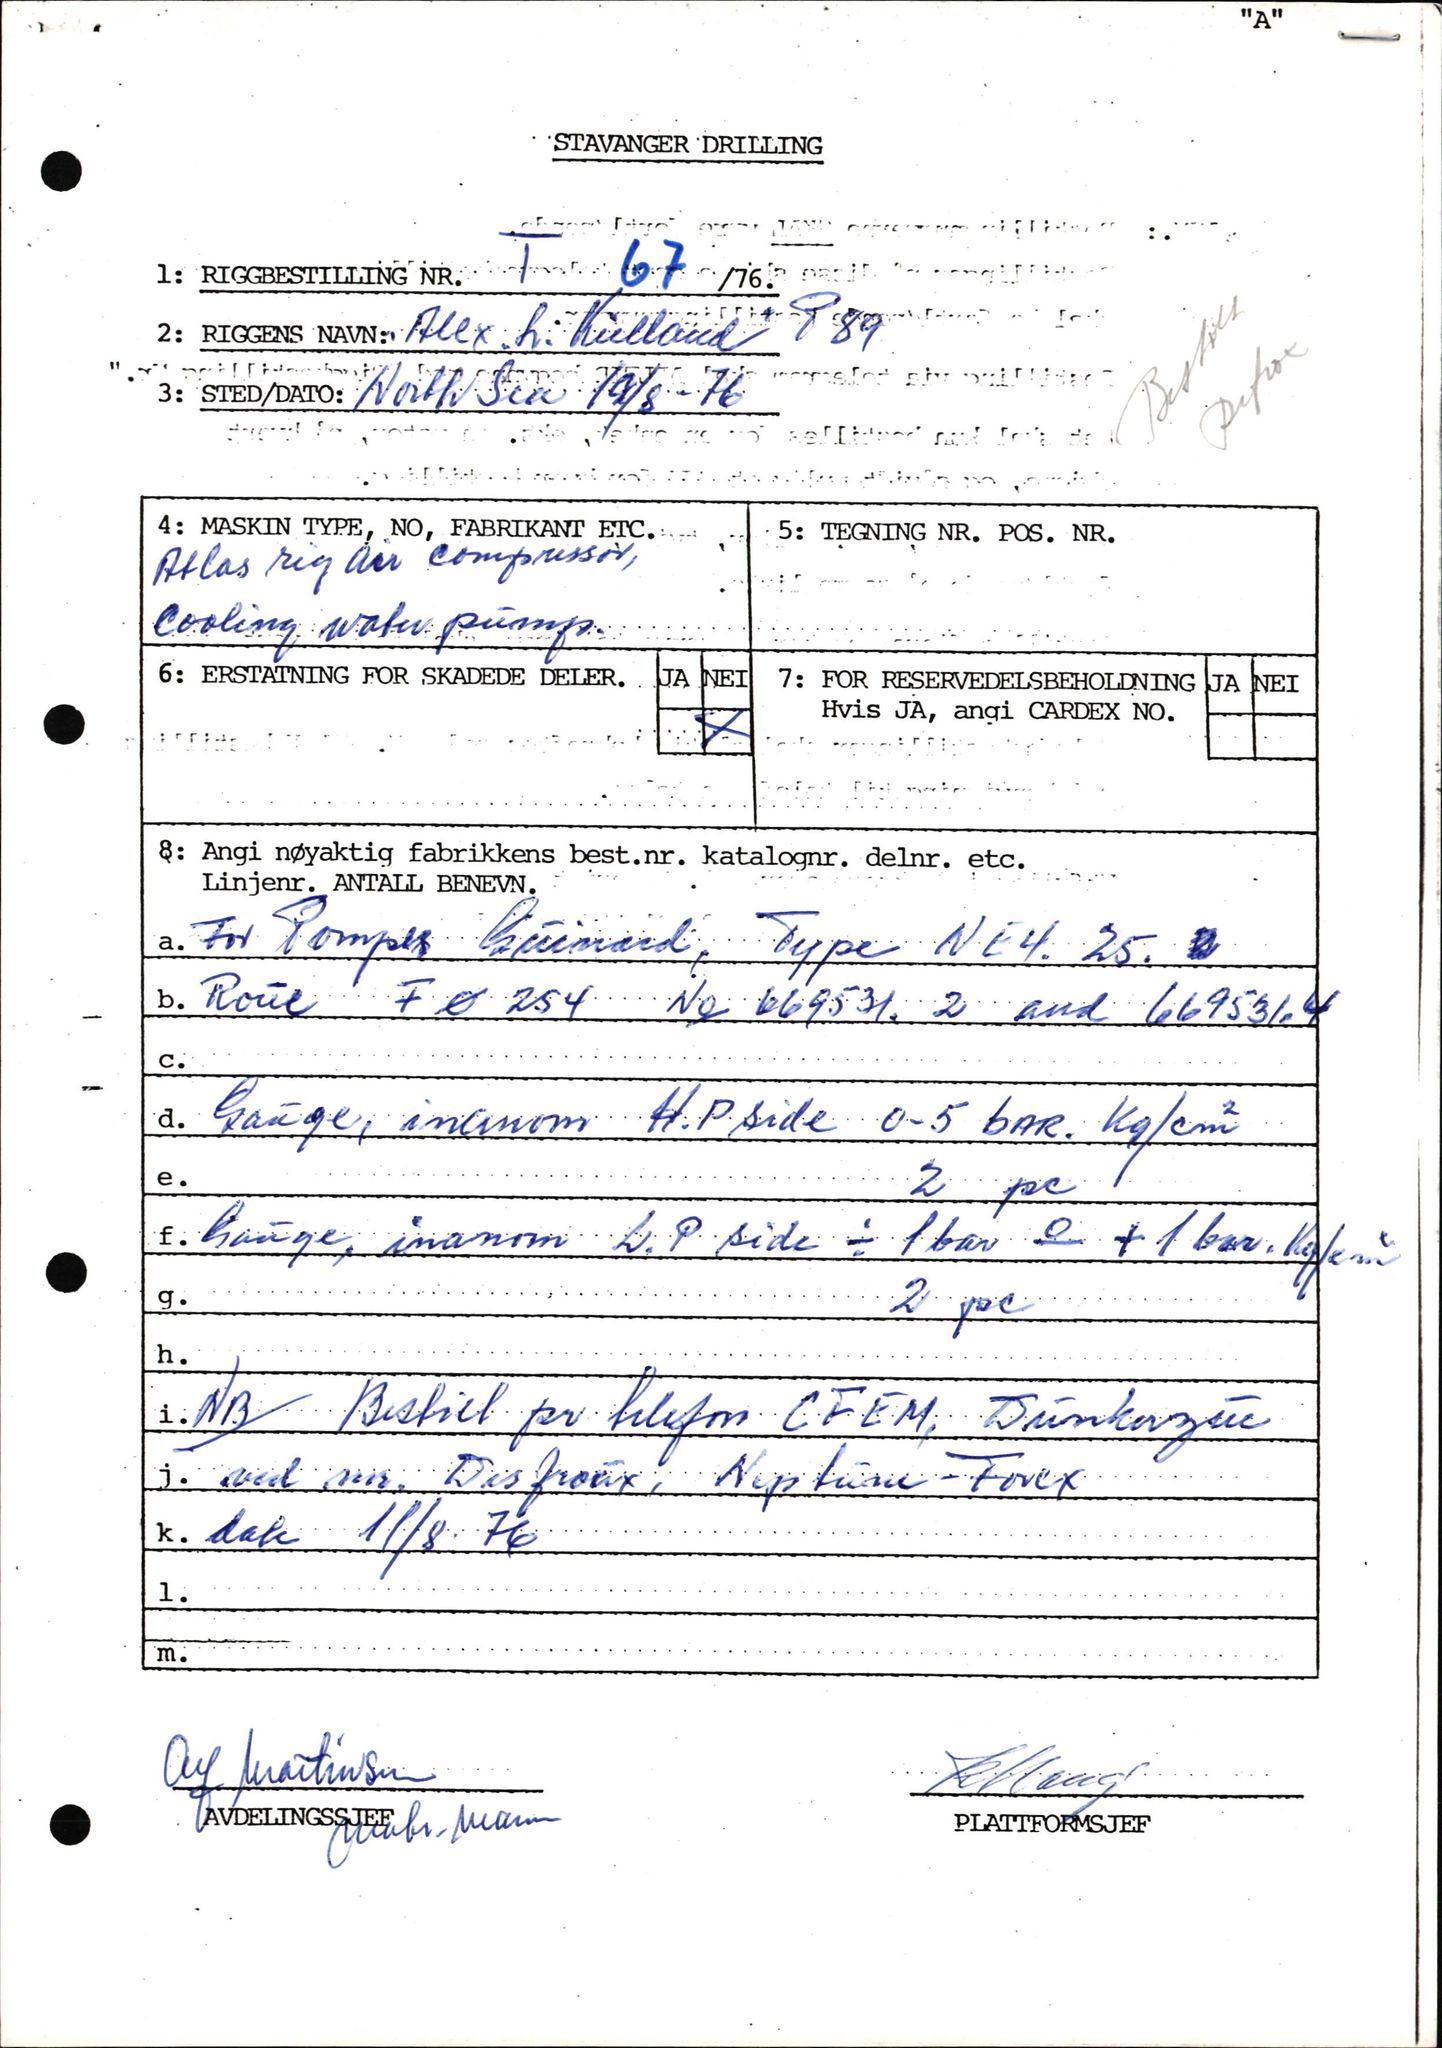 "A"
STAVANGER DRILLING
1: RIGGBESTILLING NR. T 67 /76.
2: RIGGENS NAVN: Alex. L. Kielland P 89
3: STED/DATO: North Sea 19/8-76
Bestilt
4: MASKIN TYPE, NO, FABRIKANT ETC.
Atlas rig air compressor,
cooling water pump.
5: TEGNING NR. POS. NR.
6: ERSTATNING FOR SKADEDE DELER. JA NEI
X
7: FOR RESERVEDELSBEHOLDNING JA NEI
Hvis JA, angi CARDEX NO.
8: Angi nøyaktig fabrikkens best.nr. katalognr. delnr. etc.
Linjenr. ANTALL BENEVN.
a. For Pompes Guinard, Type NE4. 25.
b. Roue F ø 254 No 669531. 2 and 669531.4
c.
d. Gauge, H.P side 0-5 bar. Kg/cm²
e. 2 pc
f. Gauge, L.P side ÷ 1 bar 0 + 1 bar. Kg/cm²
g. 2 pc
h.
i. NB Bestilt pr telefon CFEM, Dunkerque
j. ved mr. Desfroux, Neptune-Forex
k. date 11/8-76
l.
m.
Martinsen
AVDELINGSSJEF
PLATTFORMSJEF